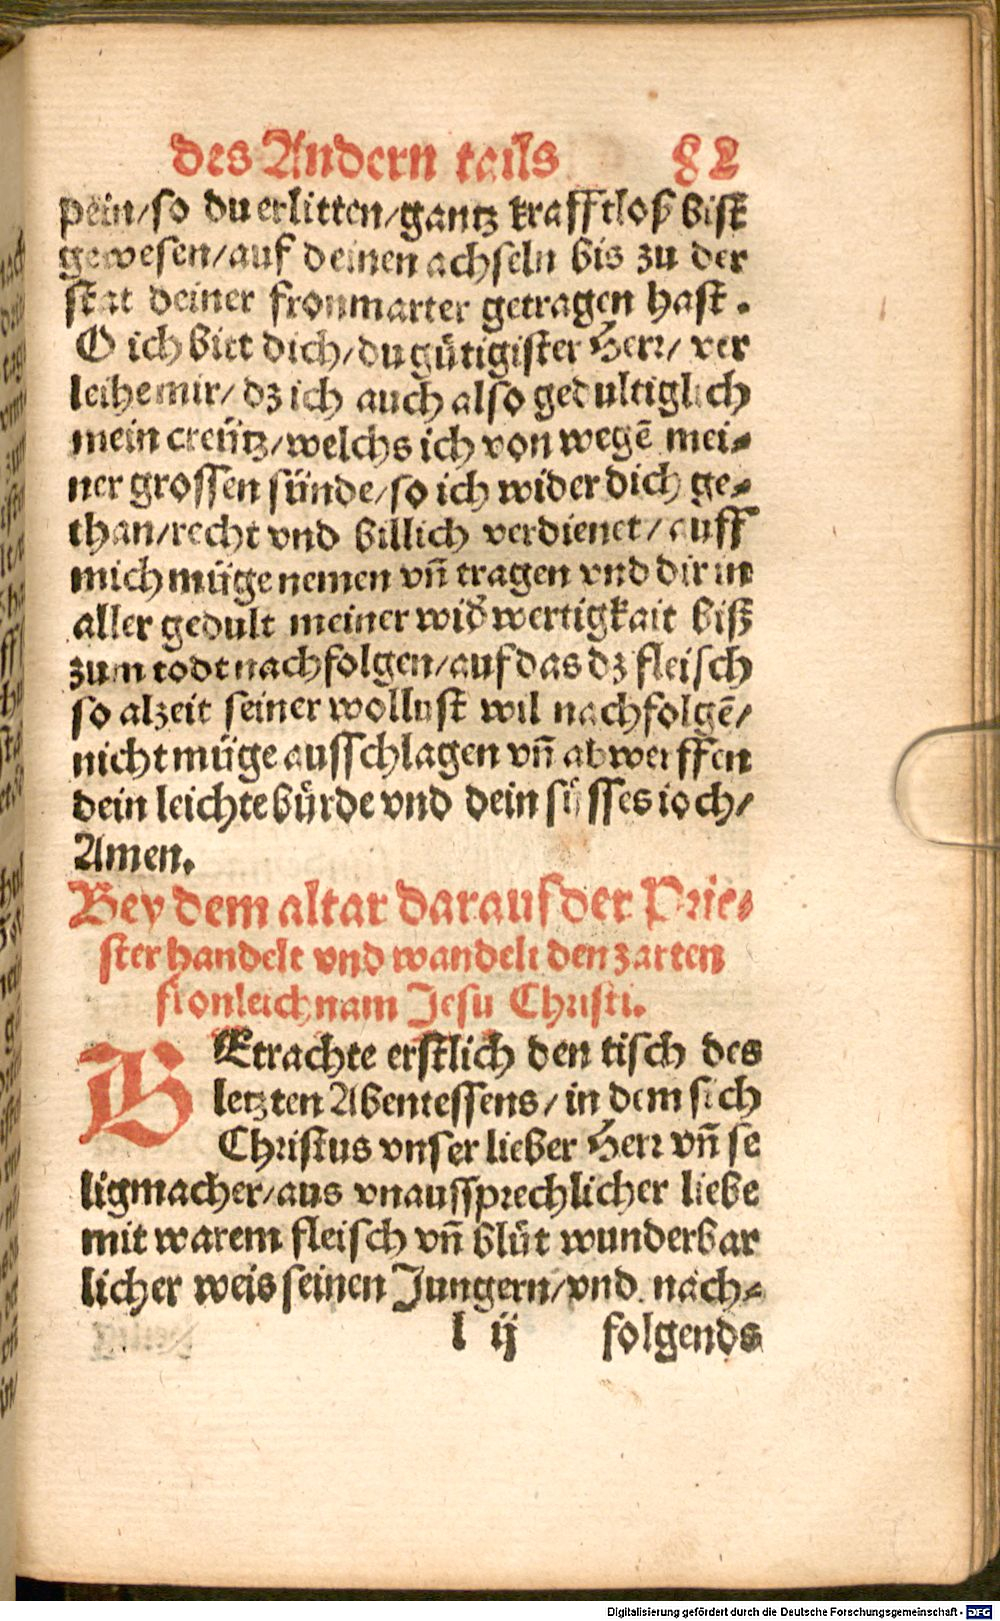 des Andern tails 82
pein/so du erlitten/gantz krafftloß bist
gewesen/auf deinen achseln bis zu der
stat deiner fronmarter getragen hast.
O ich bitt dich/du gütigister Herr/ ver
leihe mir/ dz ich auch also gedultiglich
mein creütz/welchs ich von wegē mei-
ner grossen sünde/so ich wider dich ge-
than/recht vnd billich verdienet/auff
mich müge nemen vñ tragen vnd dir in
aller gedult meiner widʼwertigkait biß
zum todt nachfolgen/auf das dz fleisch
so alzeit seiner wollust wil nachfolgē/
nicht müge ausschlagen vñ abwerffen
dein leichte bürde vnd dein süsses ioch/
Amen.
Bey dem altar darauf der Prie-
ster handelt vnd wandelt den zarten
fronleichnam Jesu Christi.
BEtrachte erstlich den tisch des
letzten Abentessens/in dem sich
Christus vnser lieber Herr vñ se
ligmacher/aus vnaussprechlicher liebe
mit warem fleisch vñ blůt wunderbar
licher weis seinen Jungern/vnd nach-
l ij folgends
Digitalisierung gefördert durch die Deutsche Forschungsgemeinschaft - DFG